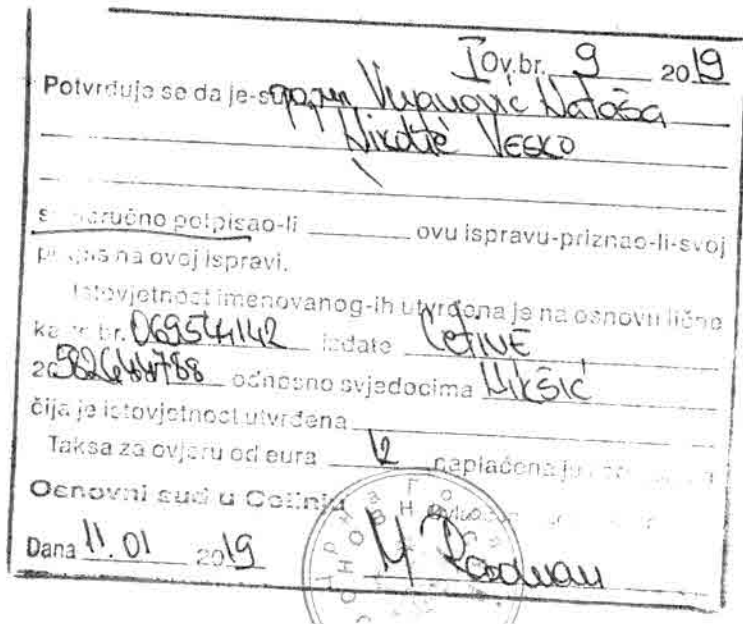 I Ov.br. 9 2019
Potvrđuje se da je-su Vujanović Nataša
Nikolić VESKO
svojeručno potpisao-li ovu ispravu-priznao-li-svoj
potpis na ovoj ispravi.
Istovjetnost imenovanog-ih utvrđena je na osnovu lične
karte br. 069544142 izdate CETINE
20 odnosno svjedocima NIKŠIĆ
čija je istovjetnost utvrđena
Taksa za ovjeru od eura naplaćena je
Osnovni sud u Cetinju
Dana 11.01 2019